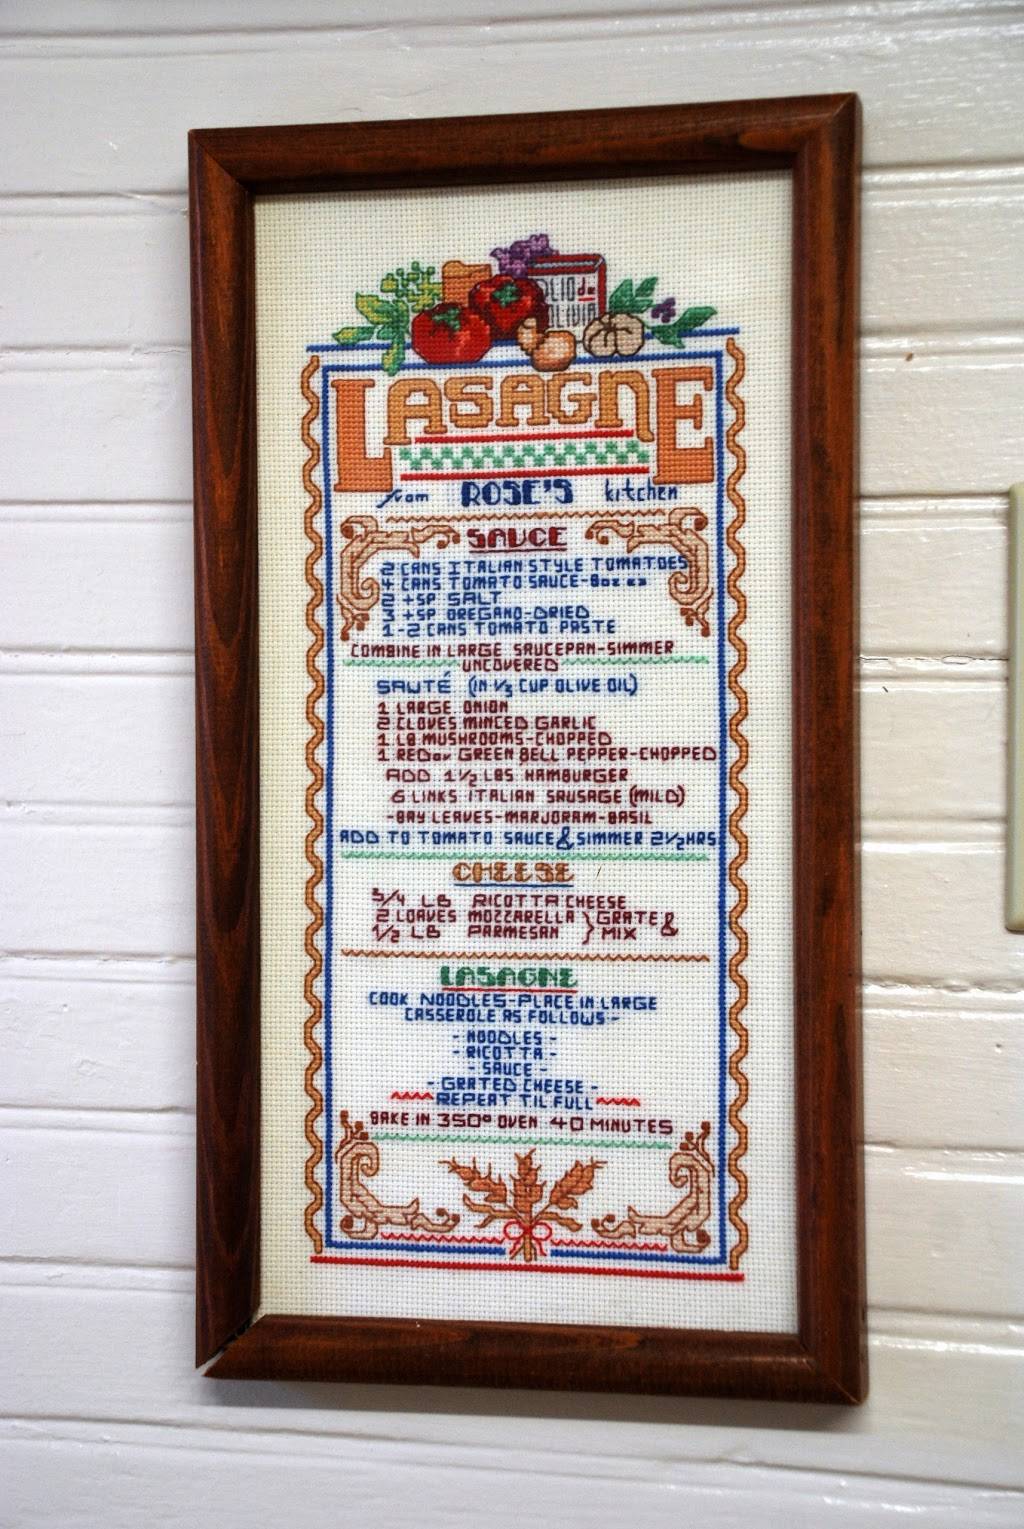 OLIO de
OLIVIA
LASAGNE
from ROSE'S kitchen
SAUCE
2 CANS ITALIAN STYLE TOMATOES
4 CANS TOMATO SAUCE-8oz
2 tSP SALT
3 tSP OREGANO-DRIED
1-2 CANS TOMATO PASTE
COMBINE IN LARGE SAUCEPAN-SIMMER
UNCOVERED
SAUTÉ (IN 1/3 CUP OLIVE OIL)
1 LARGE ONION
2 CLOVES MINCED GARLIC
1 LB MUSHROOMS-CHOPPED
1 RED or GREEN BELL PEPPER-CHOPPED
ADD 1 1/2 LBS HAMBURGER
6 LINKS ITALIAN SAUSAGE (MILD)
-BAY LEAVES-MARJORAM-BASIL
ADD TO TOMATO SAUCE & SIMMER 2 1/2 HRS
CHEESE
3/4 LB RICOTTA CHEESE
2 LOAVES MOZZARELLA } GRATE &
1/2 LB PARMESAN } MIX
LASAGNE
COOK NOODLES-PLACE IN LARGE
CASSEROLE AS FOLLOWS-
- NOODLES -
- RICOTTA -
- SAUCE -
- GRATED CHEESE -
REPEAT TIL FULL
BAKE IN 350° OVEN 40 MINUTES